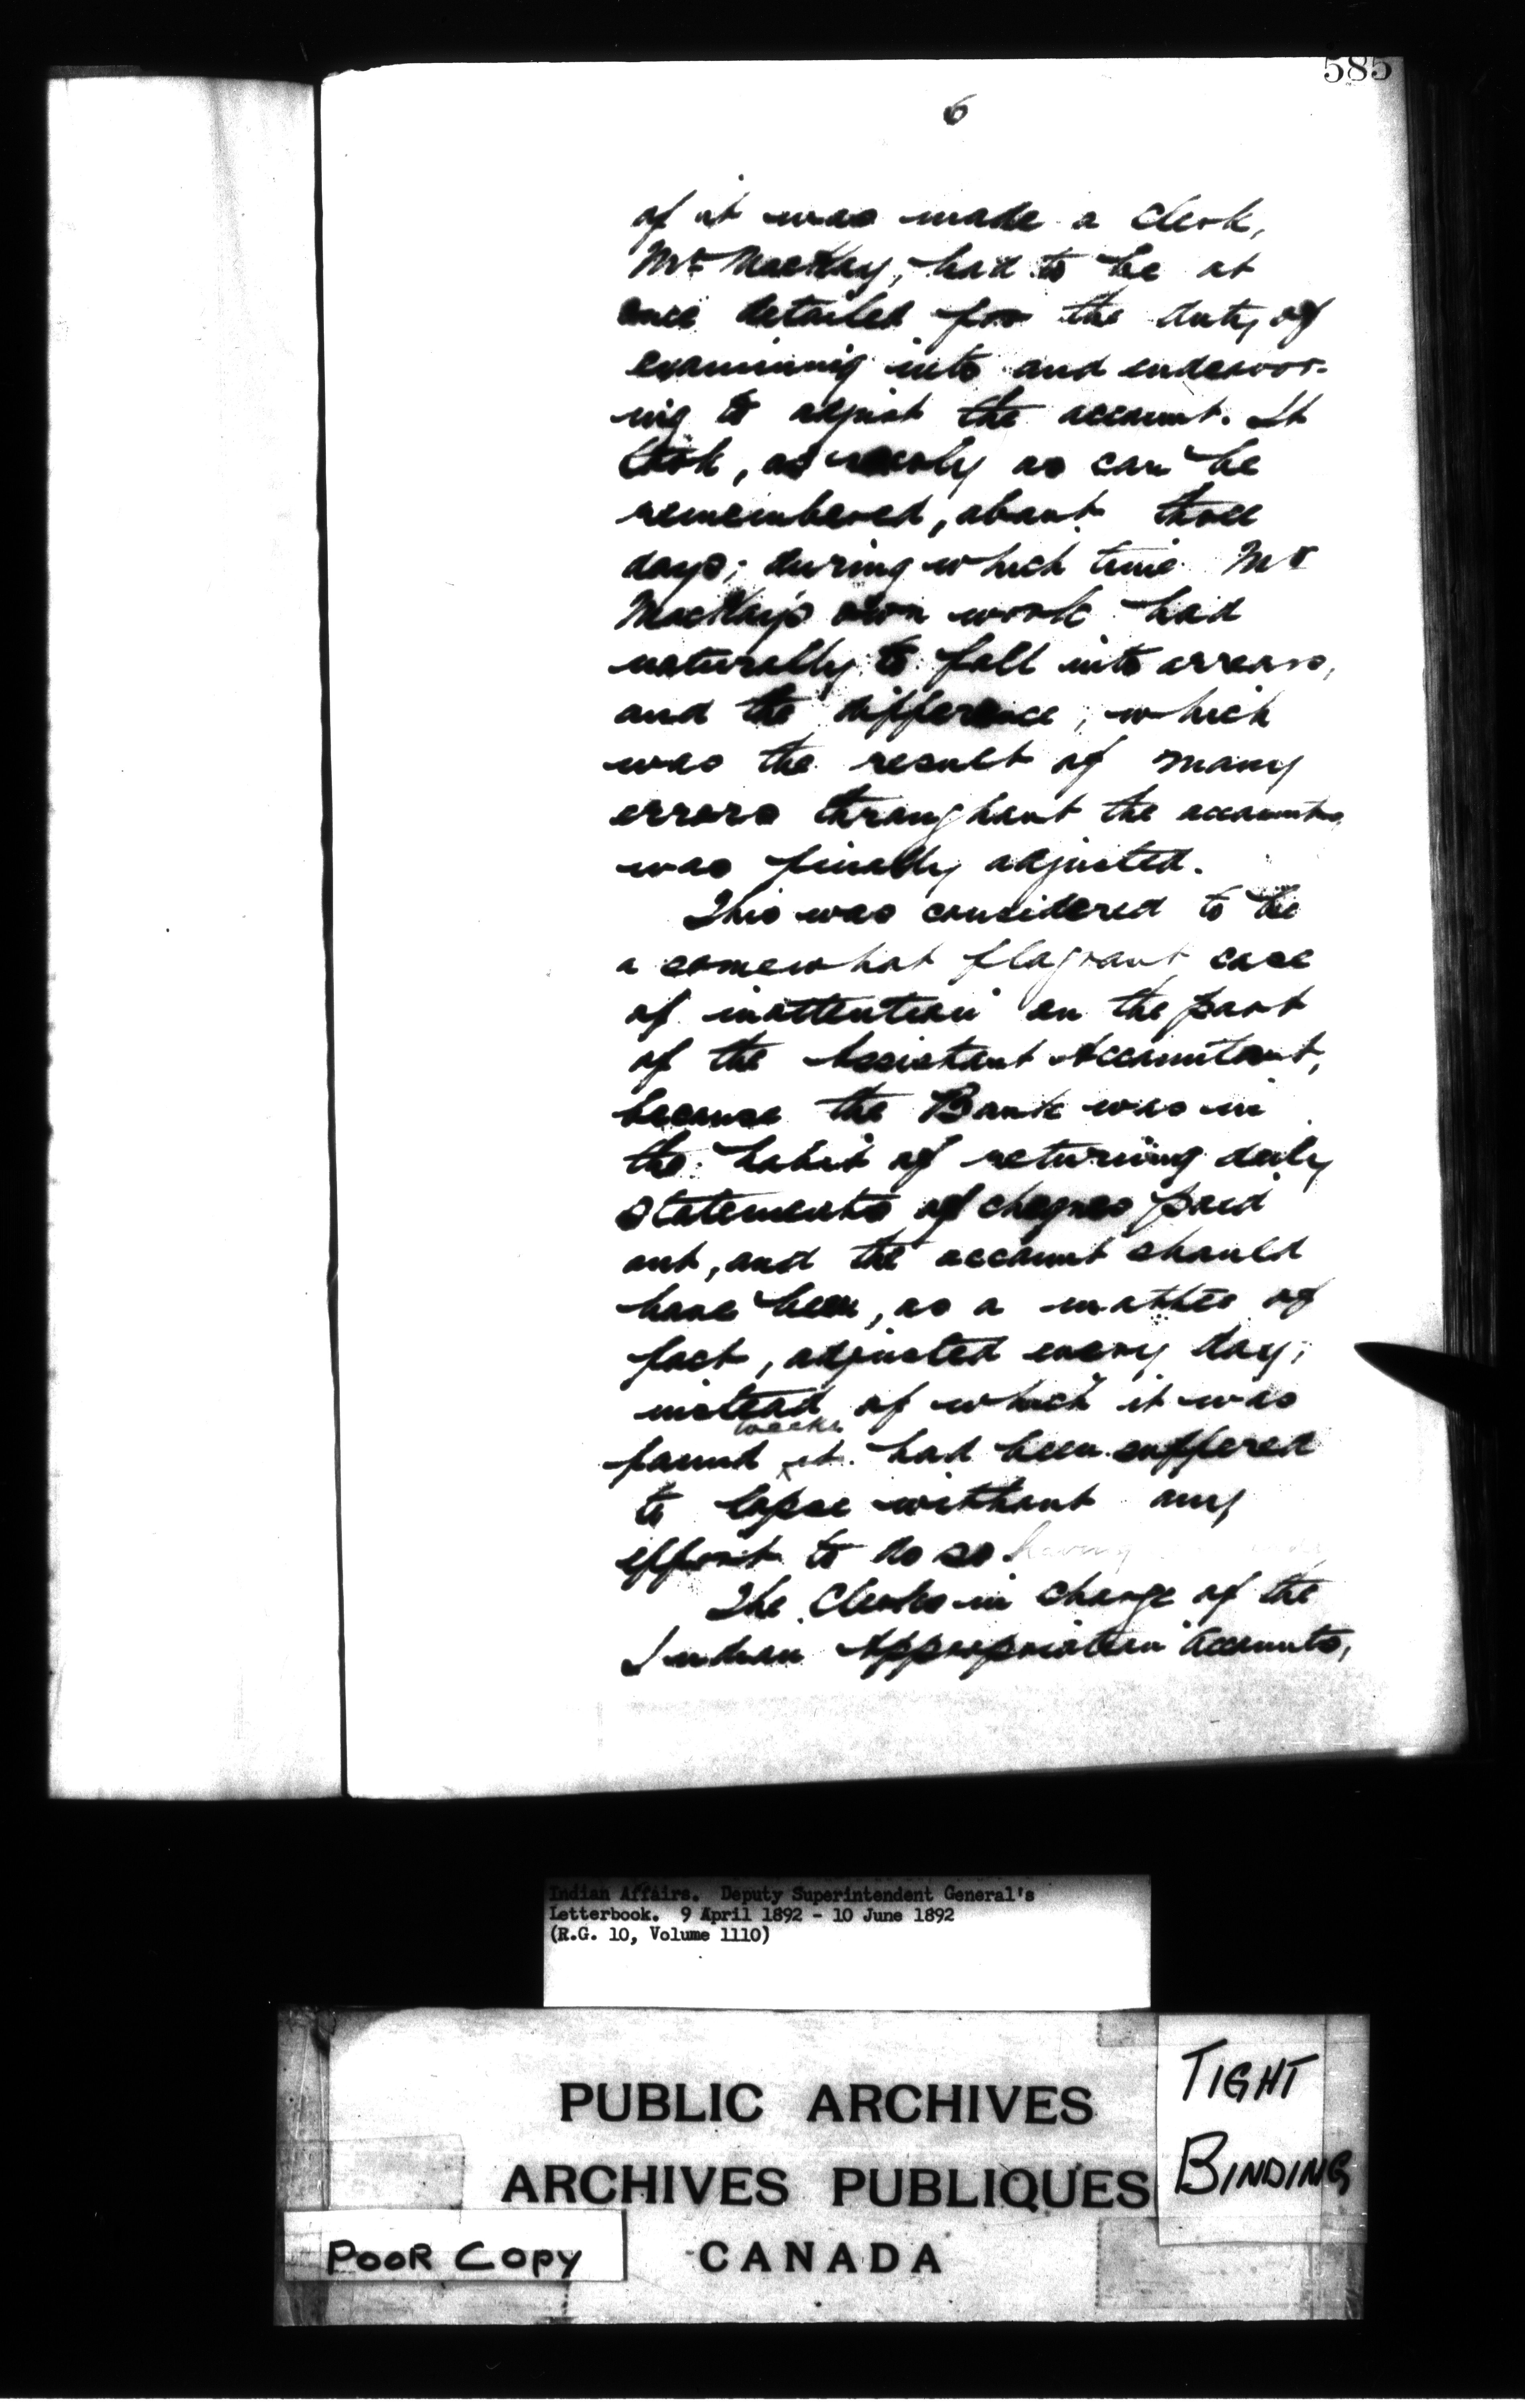 585
6
of it was made a Clerk,
Mr MacKay, had to be at
once detailed for the duty of
examining into and endeavor-
ing to adjust the account. It
took, as nearly as can be
remembered, about three
days; during which time Mr
MacKay's own work had
naturally to fall into arrears,
and the difference, which
was the result of many
errors throughout the accounts,
was finally adjusted.
This was considered to be
a somewhat flagrant case
of inattention on the part
of the Assistant Accountant,
because the Bank was in
the habit of returning daily
statements of cheques paid
out, and the account should
have been, as a matter of
fact, adjusted every day;
instead of which it was
weeks
found it had been suffered
to lapse without any
effort to do so. having
The Clerks in charge of the
Indian Appropriation Accounts,
Indian Affairs. Deputy Superintendent General's
Letterbook. 9 April 1892 - 10 June 1892
(R.G. 10, Volume 1110)
PUBLIC ARCHIVES
ARCHIVES PUBLIQUES
CANADA
TIGHT
BINDING
POOR COPY